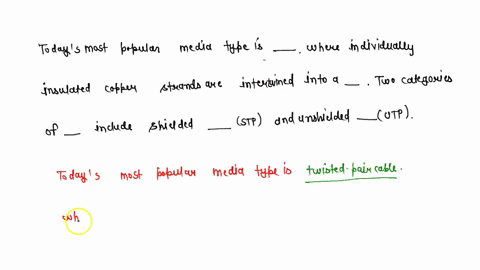 Today's most popular media type is ___, where individually
insulated copper strands are intertined into a __. Two categories
of __ include shielded ___ (STP) and unshielded ___ (UTP).
Today's most popular media type is twisted-pair cable.
wh